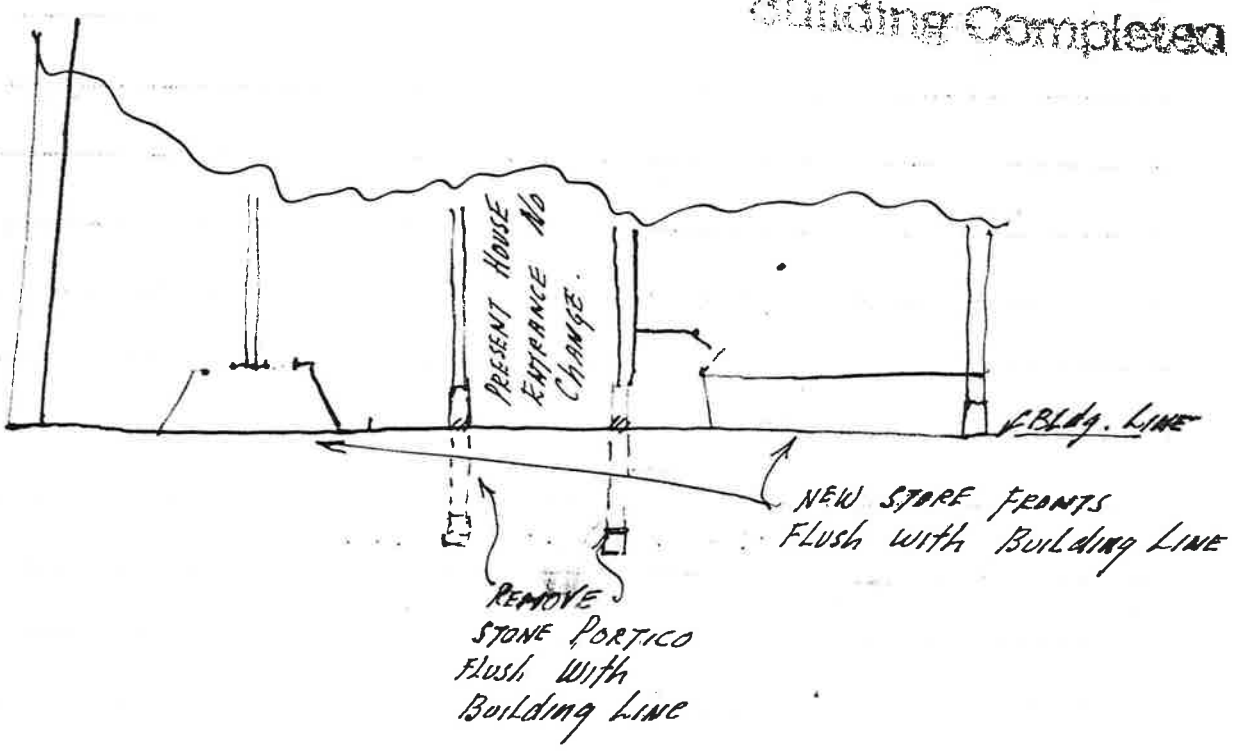 Building Completed
PRESENT HOUSE
ENTRANCE NO
CHANGE.
BLdg. LINE
NEW STORE FRONTS
FLUSH WITH BUILDING LINE
REMOVE
STONE PORTICO
FLUSH WITH
BUILDING LINE